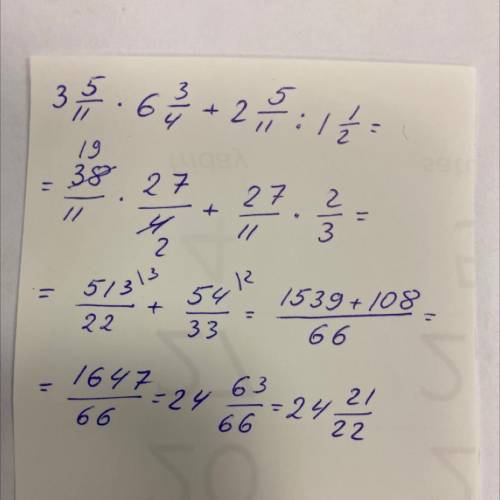 3 5/11 · 6 3/4 + 2 5/11 : 1 1/2 =
19
= 38/11 · 27/4 + 27/11 · 2/3 =
2
= 513\3/22 + 54\2/33 = 1539+108/66 =
= 1647/66 = 24 63/66 = 24 21/22